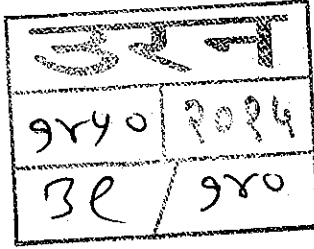 उरन
१४५० २०२५
३९ / १४०